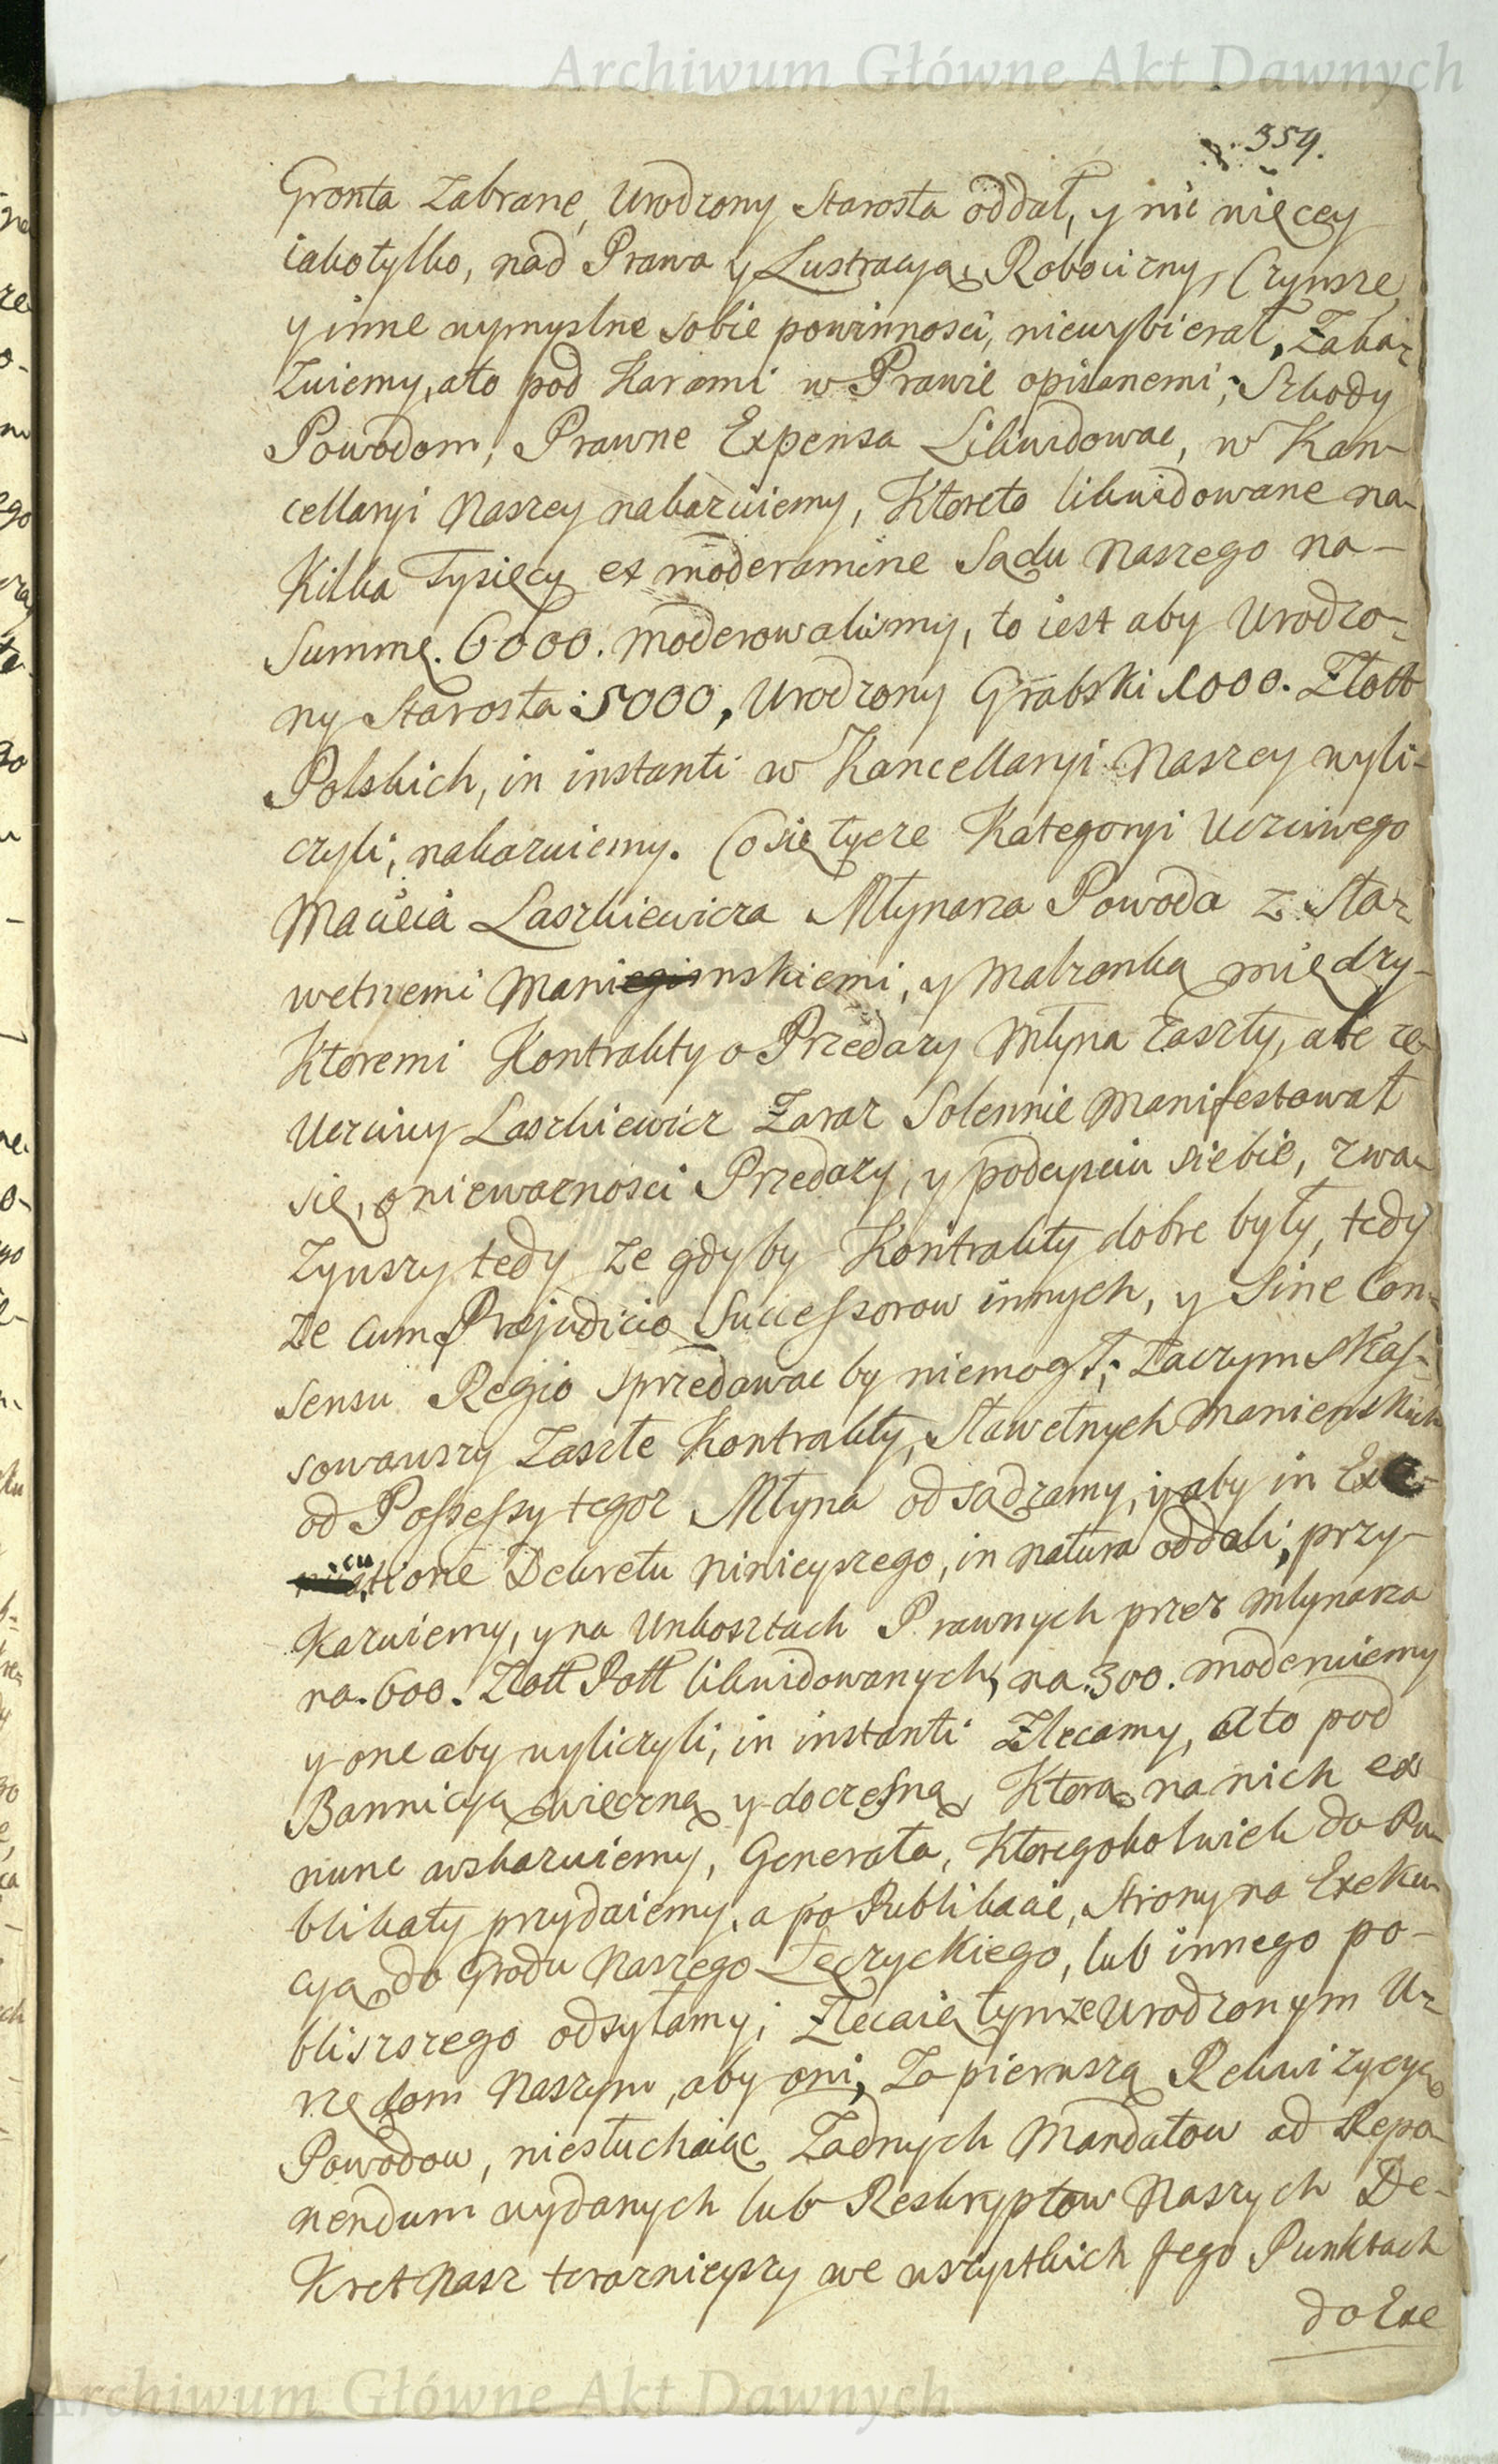 Archiwum Główne Akt Dawnych
359.
Gronta Zabrane, Urodzony Starosta oddał, y nic więcey
iako tylko, nad Prawa y Lustracyą, Robocizny, Czynsze,
y inne wymyslne sobie powinnosci, niewybierał, Zaka-
zuiemy, ato pod Karami w Prawie opisanemi; Szkody
Powodom, Prawne Expensa Likwidowac, w Kan-
cellaryi Naszey nakazuiemy, Ktoreto likwidowane na
Kilka Tysięcy ex moderamine Sądu Naszego na-
Summę. 6000. moderowalismy, to iest aby Urodzo-
ny Starosta: 5000, Urodzony Grabski 1000. Złott
Polskich, in instanti w Kancellaryi Naszey wyli-
czyli, nakazuiemy. Co się tycze Kategoryi Uczciwego
Macieia Laszkiewicza Młynarza Powoda z Sła-
wetnemi Manienskiemi, y Małzonką między-
Ktoremi Kontrakty o Przedazy Młyna Zaszły, ale ze
Uczciwy Laszkiewicz Zaraz Solennie Manifestował
się, o niewaznosci Przedazy, y podeysciu siebie, zwa-
zywszy tedy ze gdyby Kontrakty dobre były, tedy
ze cum Præjudicio Successorow innych, y Sine Con-
sensu Regio sprzedawac by niemogł; Zaczym Skas-
sowawszy Zaszłe Kontrakty, Sławetnych Manienskich
od Possessy tegoz Młyna odsądzamy, y aby in Exe-
cutione Dekretu Ninieyszego, in natura oddali, przy-
kazuiemy, y na Unkosztach Prawnych przez Młynarza
na. 600. Złott Poll likwidowanych, na. 300. moderuiemy
y one aby wyliczyli, in instanti Zlecamy, ato pod
Bannicyą wieczną y doczesną, Ktorą na nich ex
nunc wskazuiemy, Generała, Ktoregokolwiek do Pu-
blikaty przydaiemy, a po Publikacie, Strony na Exeku-
cyą do Grodu Naszego Łęczyckiego, lub innego po-
blizszego odsyłamy; Zlecaiąc tymze Urodzonym U-
rzędom Naszym, aby oni, Za pierwszą Rekwizycyą
Powodow, niesłuchaiąc Zadnych Mandatow ad Repo-
nendum wydanych lub Reskryptow Naszych De-
kret Nasz teraznieyszy we wszystkich Jego Punktach
do Exe
Archiwum Główne Akt Dawnych